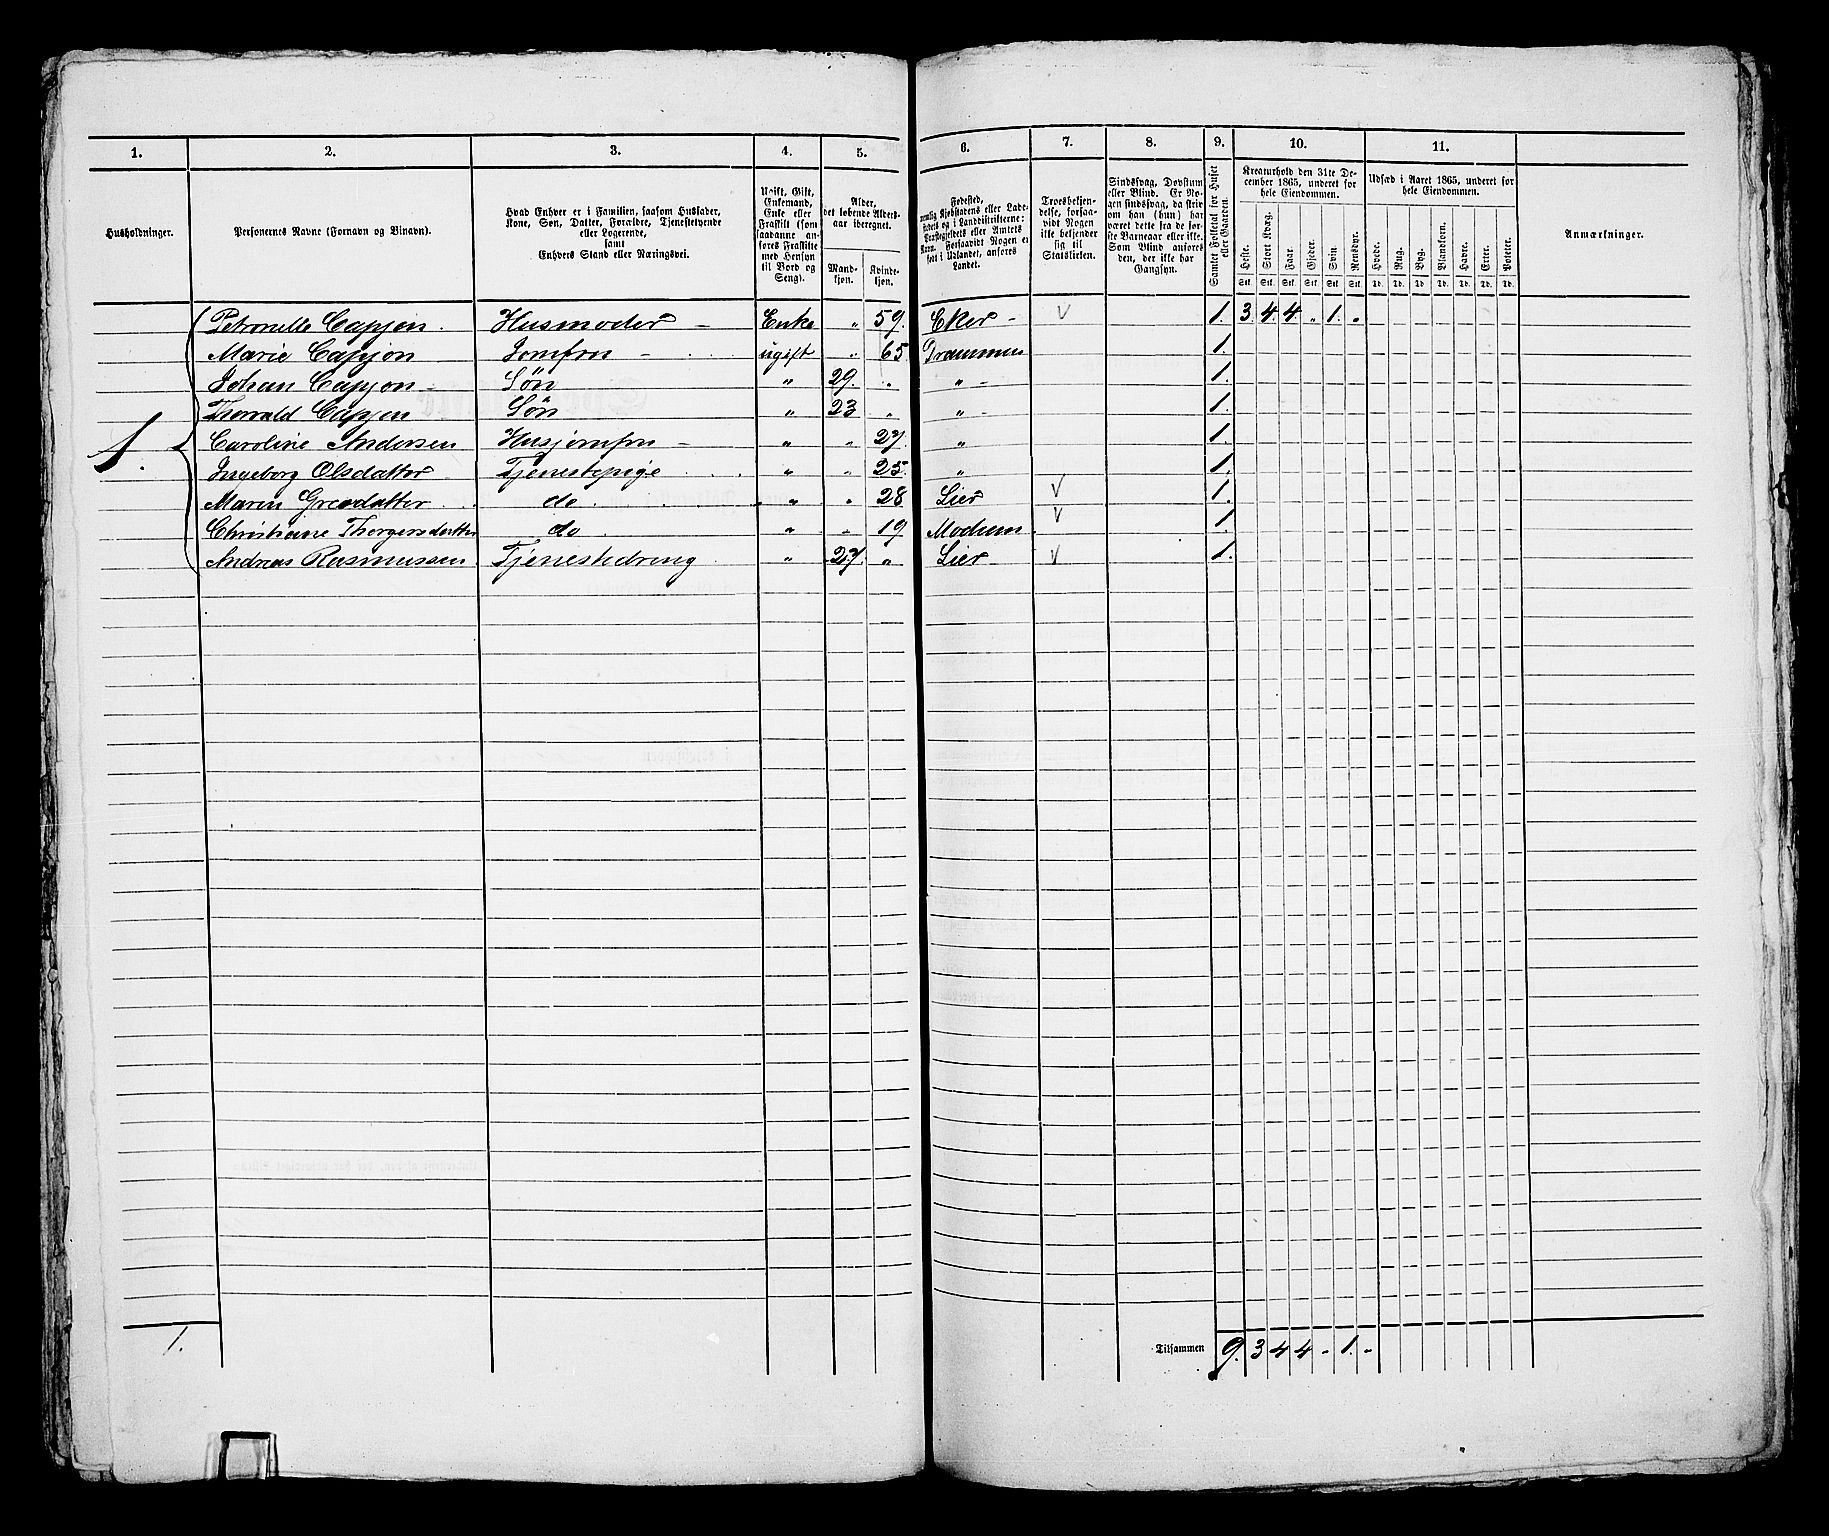 1. 2. 3. 4. 5. 6. 7. 8. 9. 10. 11.
Husholdninger.
Personernes Navne (Fornavn og Binavn).
Hvad Enhver er i Familien, saasom Husfader,
Kone, Søn, Datter, Forældre, Tjenestetyende
eller Logerende,
samt
Enhvers Stand eller Næringsvei.
Ugift, Gift,
Enkemand,
Enke eller
Fraskilt (som
saadanne an-
føres Fraskilte
med Hensyn
til Bord og
Seng).
Alder,
det løbende Alders-
aar iberegnet.
Mand-
kjøn.
Kvinde-
kjøn.
Fødested,
nemlig Kjøbstadens eller Lade-
stedets og i Landdistrikterne:
Præstegjeldets eller Amtets
Navn. Forsaavidt Nogen er
født i Udlandet, anføres
Landet.
Troesbekjen-
delse, forsaa-
vidt Nogen
ikke bekjender
sig til
Statskirken.
Sindssvag, Døvstum
eller Blind. Er No-
gen sindssvag, da skriv
om han (hun) har
været dette fra de før-
ste Barneaar eller ikke.
Som Blind anføres
den, der ikke har
Gangsyn.
Samlet Folketal for Huset
eller Gaarden.
Kreaturhold den 31te De-
cember 1865, underet for
hele Eiendommen.
Heste. Stort Kvæg. Faar. Gjeder. Svin. Rensdyr.
Stk. Stk. Stk. Stk. Stk. Stk.
Udsæd i Aaret 1865, underet for
hele Eiendommen.
Hvede. Rug. Byg. Blandkorn. Havre. Erter. Poteter.
Td. Td. Td. Td. Td. Td. Td.
Anmærkninger.
Petronelle Capjon. Husmoder – Enke „ 59. Eker – V 1. 3. 4. 4 „ 1. „
Marie Capjon Jomfru – ugift „ 65 Drammen 1.
Johan Capjon – Søn „ 29. „ „ – 1.
Thorvald Capjon Søn „ 23 „ „ – 1.
1. Caroline Andersen Husjomfru – „ „ 27. „ 1.
Ingeborg Olsdatter Tjenestepige „ „ 25. „ 1.
Maren datter do „ „ 28 Lier V 1.
Christiane Thorgersdatter do „ „ 19 Modum V 1.
Andreas Rasmussen Tjenestedreng „ 27. „ Lier V 1.
1.
Tilsammen 9. 3 4 4 „ 1. „